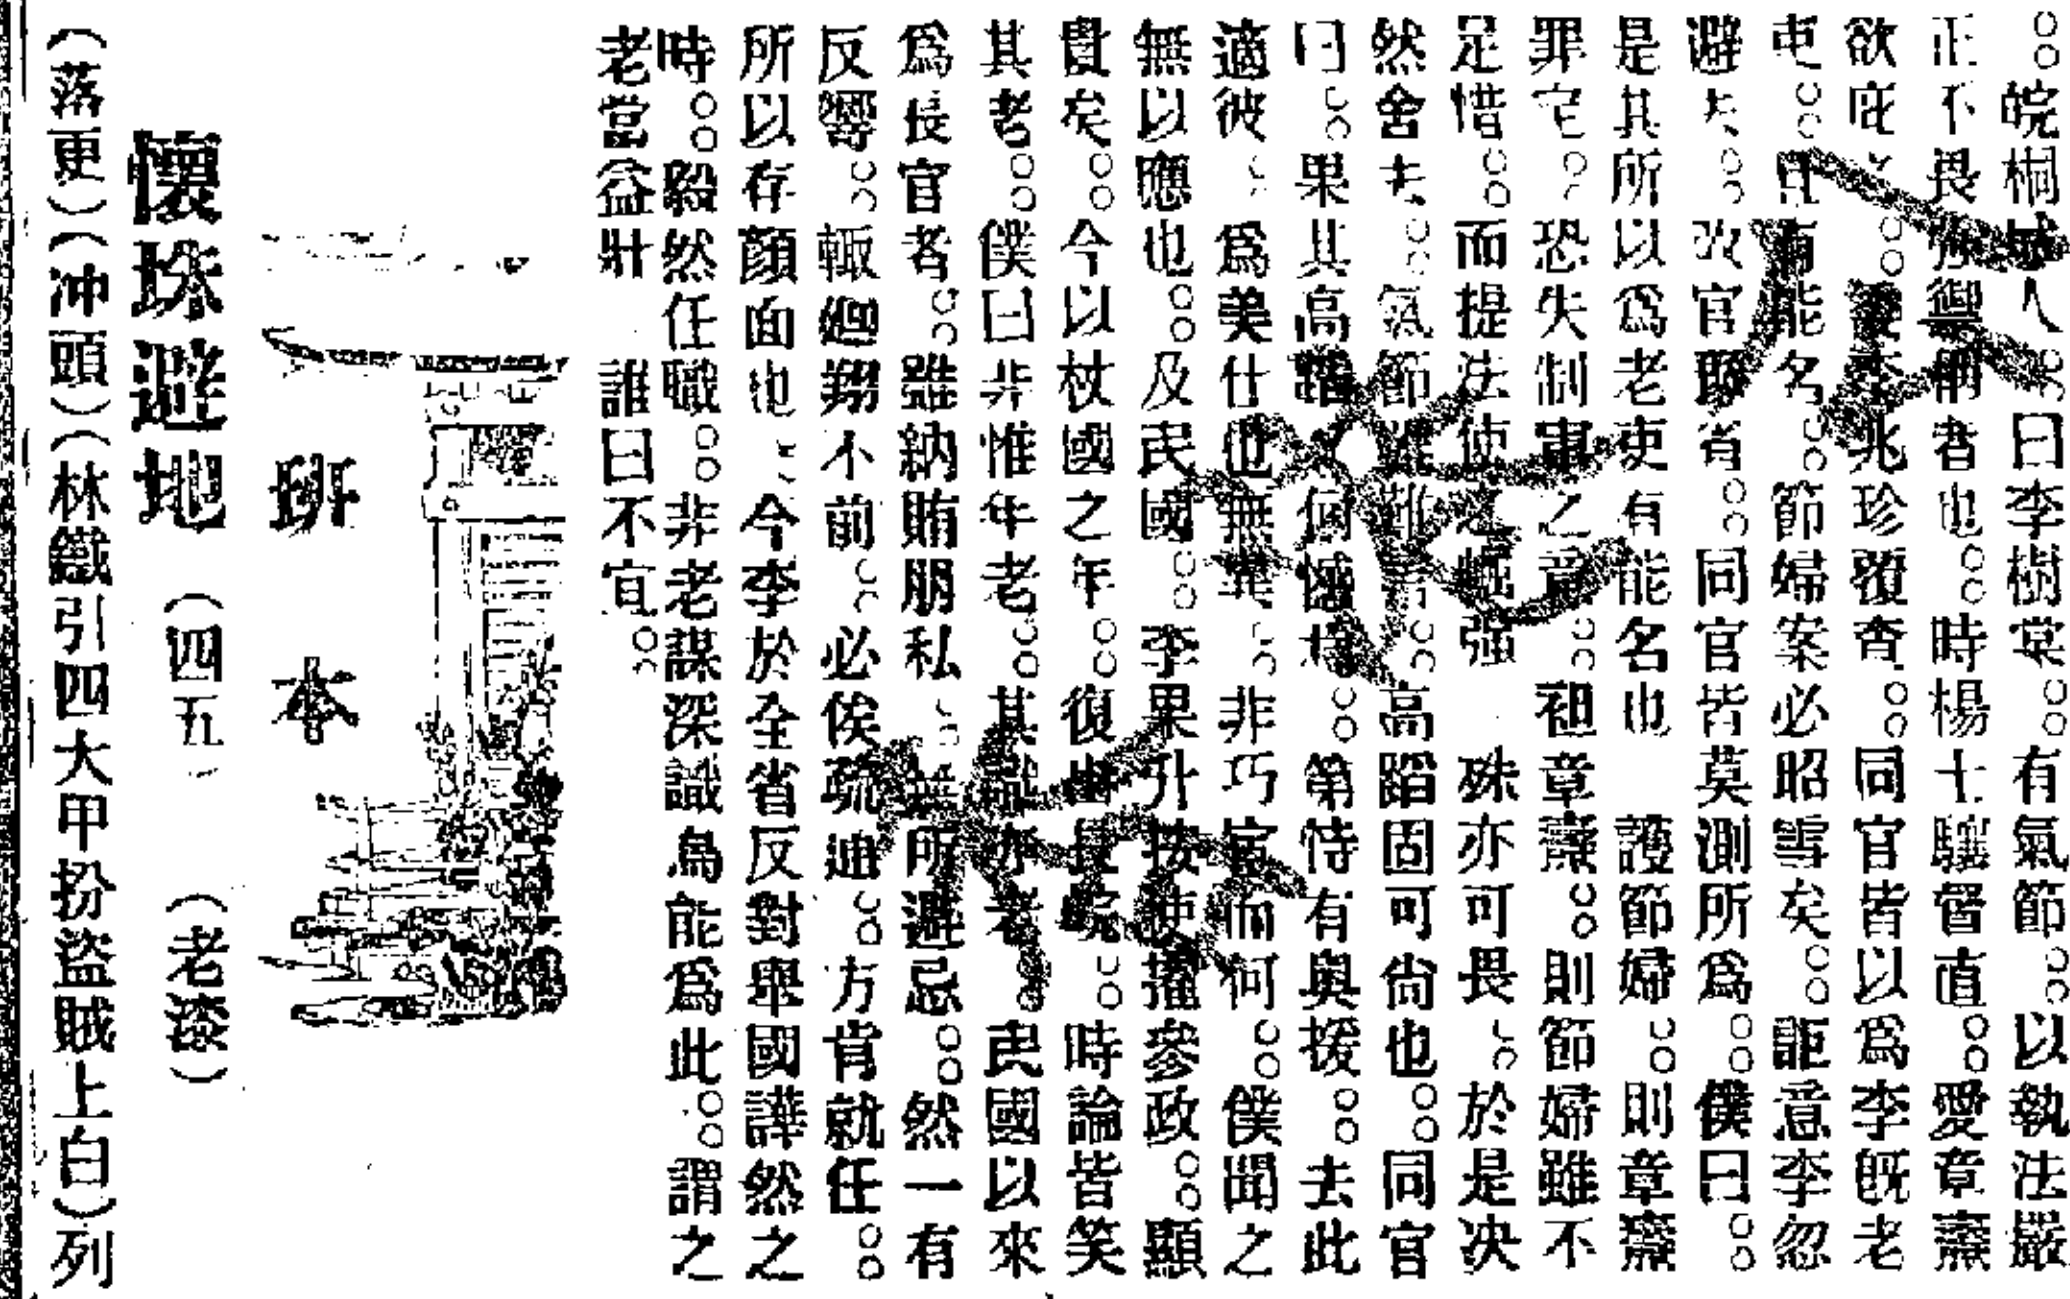 皖桐城人。曰李樹棠。有氣節。以執法嚴
正不畏彊禦稱者也。時楊士驤督直。愛章燾
欲庇。委李兆珍覆查。同官皆以爲李旣老
吏。且有能名。節婦案必昭雪矣。詎意李忽
避去。及官歸省。同官皆莫測所爲。僕曰。
是其所以爲老吏有能名也 護節婦。則章燾
罪定。恐失制軍之意。袒章燾。則節婦雖不
足惜。而提法使之崛强 殊亦可畏。於是决
然舍去。氣節難。高蹈固可尙也。同官
曰。果其高蹈 何憾 。第恃有奧援。去此
適彼。爲美仕也無異。非巧宦而何。僕聞之
無以應也。及民國。李果升按使擢參政。顯
貴矣。今以杖國之年。復出長皖。時論皆笑
其老。僕曰非惟年老。其識亦老。民國以來
爲長官者。雖納賄朋私。無所避忌。然一有
反響。輒廻翔不前。必俟疏通。方肯就任。
所以存顏面也。今李於全省反對舉國譁然之
時。毅然任職。非老謀深識烏能爲此。謂之
老當益壯 誰曰不宜。
班本
懷珠避地 (四五) (老漆)
(落更)(冲頭)(林鐵引四大甲扮盜賊上白)列